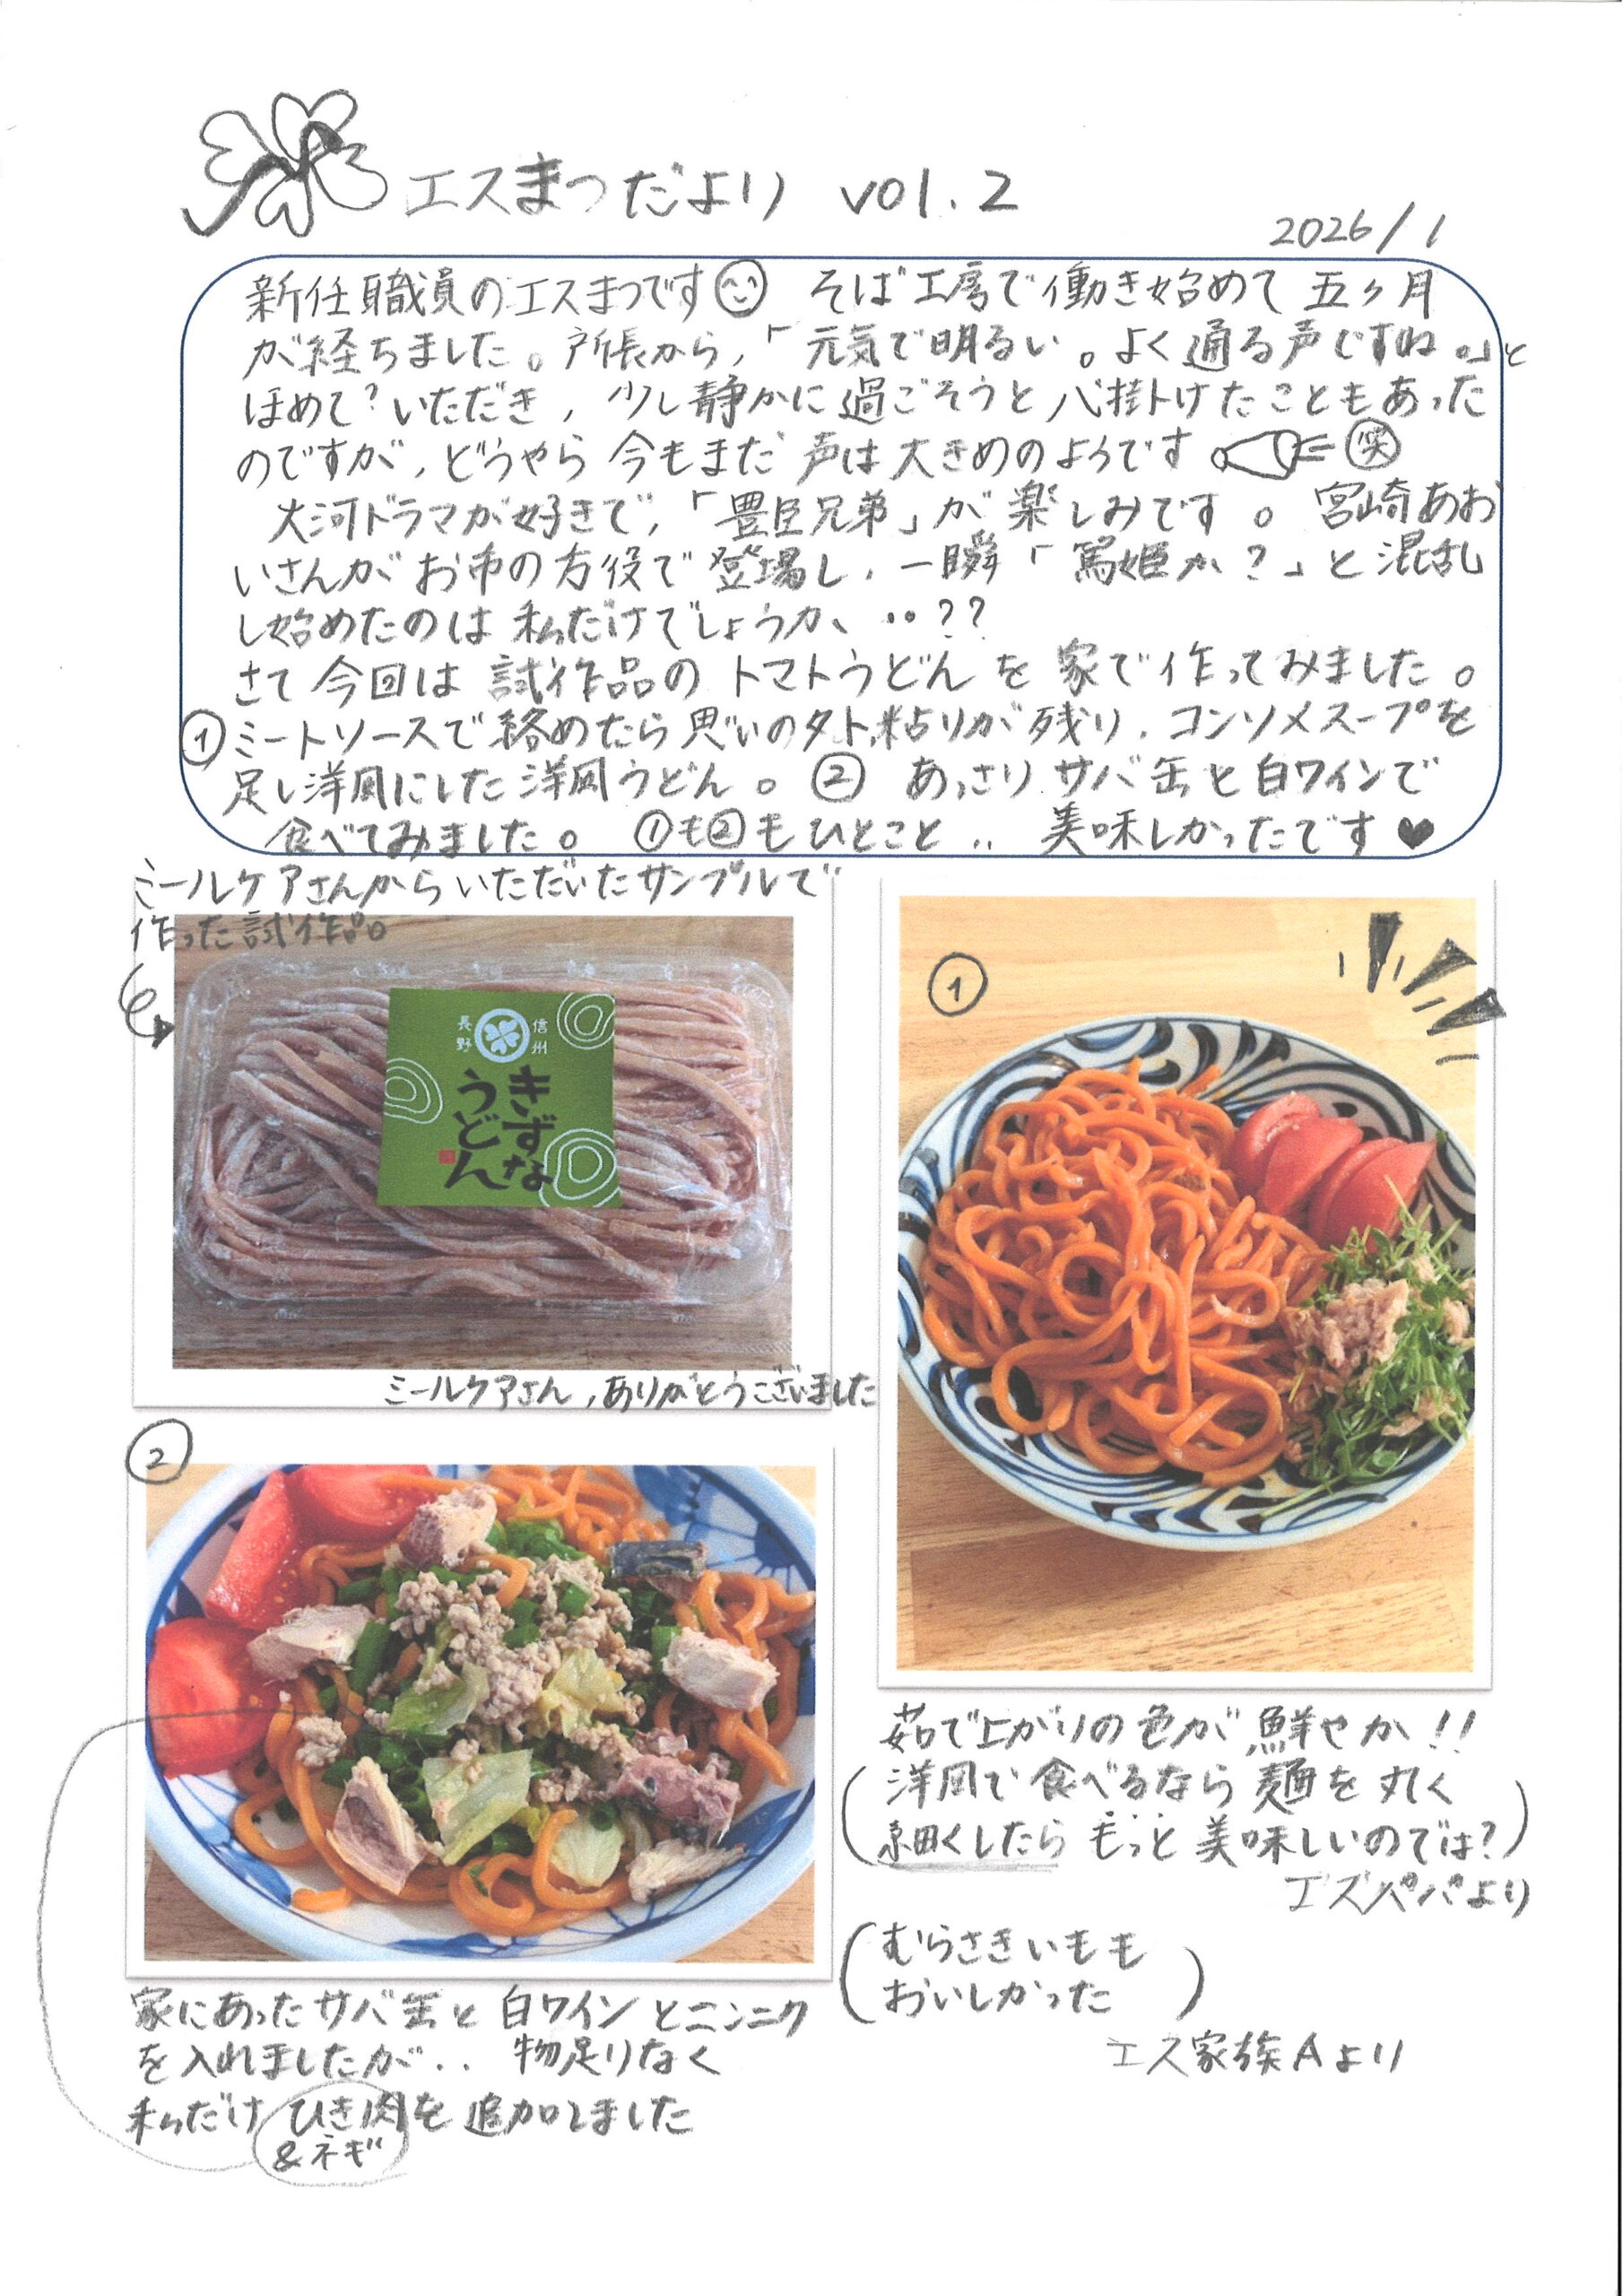 エスまつだより vol.2
2026/1
新任職員のエスまつです そば工房で働き始めて 五ヶ月
が経ちました。所長から,「元気で明るい。よく通る声ですね。」と
ほめて?いただき, 少し静かに過ごそうと心掛けたこともあった
のですが, どうやら 今もまだ 声は大きめのようです 笑
大河ドラマが好きで,「豊臣兄弟」が楽しみです。宮崎あお
いさんがお市の方役で登場し,一瞬「篤姫か?」と混乱
し始めたのは私だけでしょうか、..??
さて今回は 試作品の トマトうどん を 家で作ってみました。
①ミートソースで絡めたら思いの外,粘りが残り,コンソメスープを
足し洋風にした洋風うどん。② あっさり サバ缶と白ワインで
食べてみました。 ①も②もひとこと.. 美味しかったです♥
ミールケアさんからいただいたサンプルで
作った試作品。
信州
長野
きずな
うどん
ミールケアさん,ありがとうございました
①
②
茹で上がりの色が鮮やか!!
(洋風で食べるなら麺を丸く
細くしたら もっと美味しいのでは?)
エスパパより
(むらさきいもも
おいしかった)
エス家族Aより
家にあったサバ缶と白ワインとニンニク
を入れましたが.. 物足りなく
私だけ ひき肉を追加しました
&ネギ